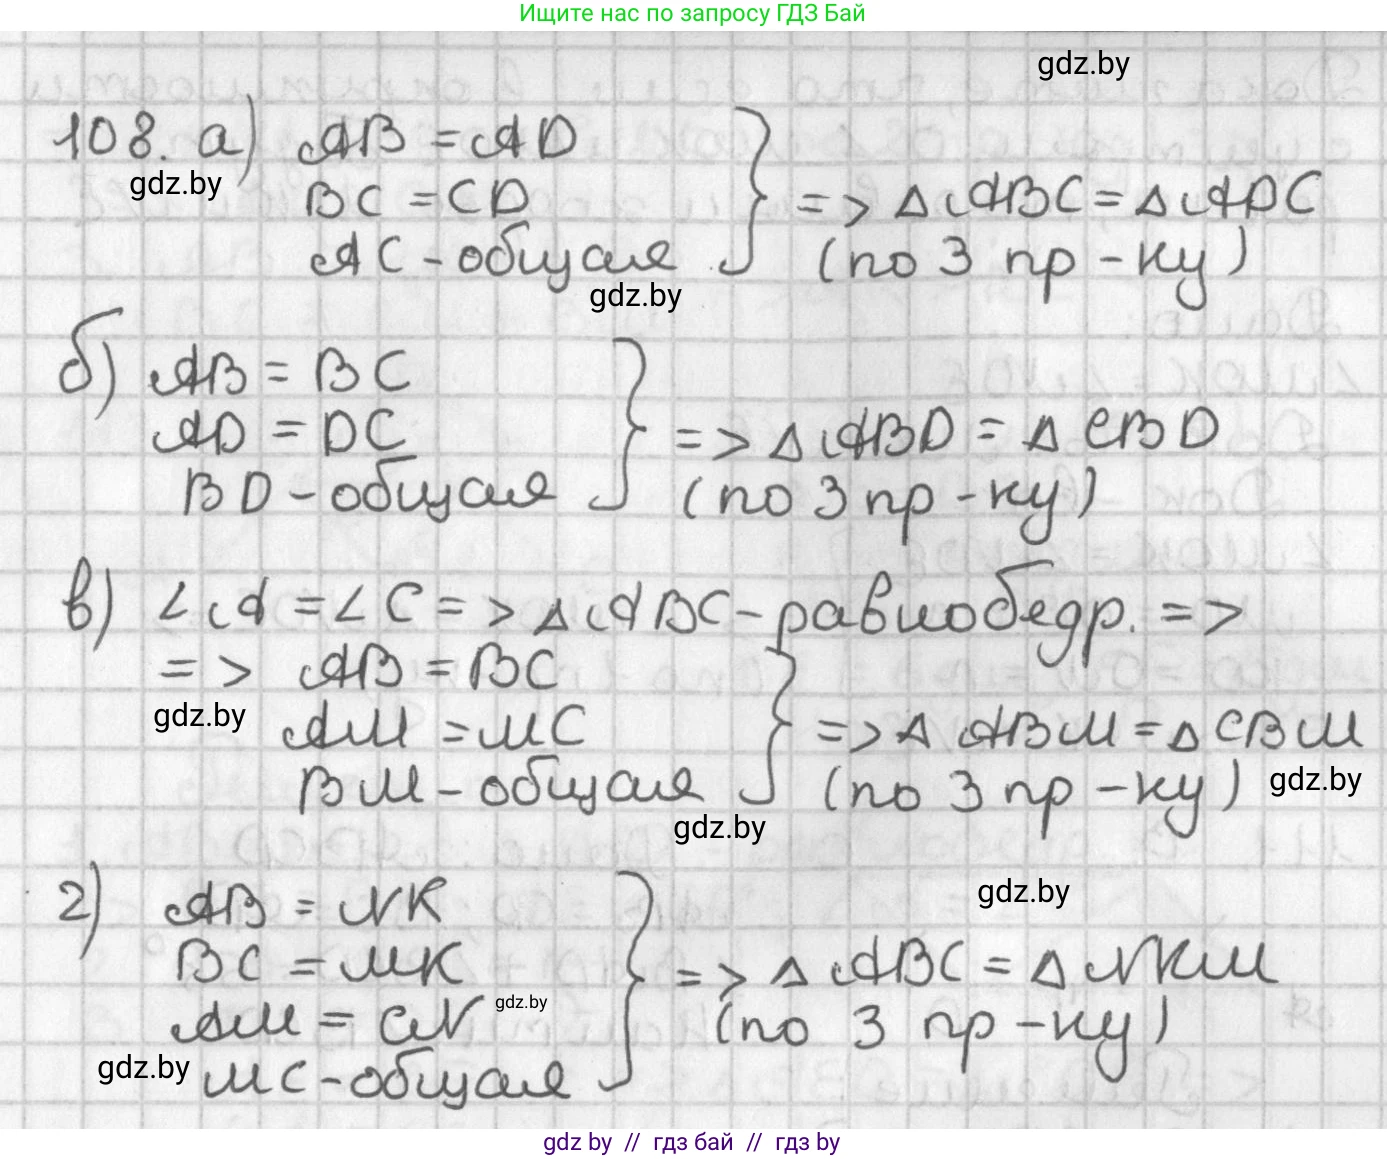 Ищите нас по запросу ГДЗ Бай
gdz.by
108. а) AB = AD
gdz.by
BC = CD
=> △ABC = △ADC
AC - общая
(по 3 пр-ку)
gdz.by
б) AB = BC
AD = DC
=> △ABD = △CBD
BD - общая
(по 3 пр-ку)
в) ∠A = ∠C => △ABC - равнобедр. =>
=> AB = BC
gdz.by
AM = MC
=> △ABM = △CBM
BM - общая
(по 3 пр-ку)
gdz.by
gdz.by
г) AB = NK
gdz.by
BC = MK
=> △ABC = △NKM
AM = CN
gdz.by
(по 3 пр-ку)
gdz.by
MC - общая
gdz by // гдз бай // гдз by